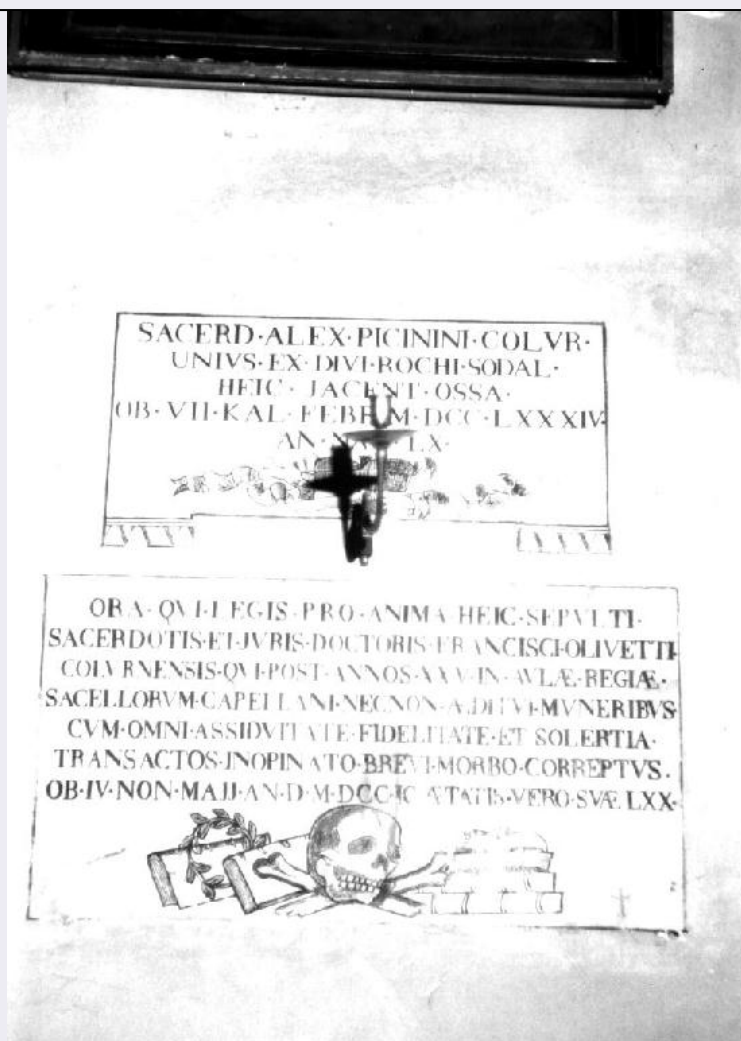 SACERD·ALEX·PICININI·COLVR·
UNIVS·EX·DIVI·ROCHI·SODAL·
HEIC·JACENT·OSSA·
OB·VII·KAL·FEBR M·DCC·LXXXIV·
AN· LX·
ORA·QVI·LEGIS·PRO·ANIMA·HEIC·SEPVLTI·
SACERDOTIS·ET·JVRIS·DOCTORIS·FRANCISCI·OLIVETTI·
COLVRNENSIS·QVI·POST·ANNOS·XXV·IN·AVLÆ·REGIÆ·
SACELLORVM·CAPELLANI·NECNON·ÆDITVI·MVNERIBVS·
CVM·OMNI·ASSIDVITATE·FIDELITATE·ET·SOLERTIA·
TRANSACTOS·JNOPINATO·BREVI·MORBO·CORREPTVS·
OB·IV·NON·MAJJ·AN·D·M·DCC·IC ÆTATIS·VERO·SVÆ LXX·